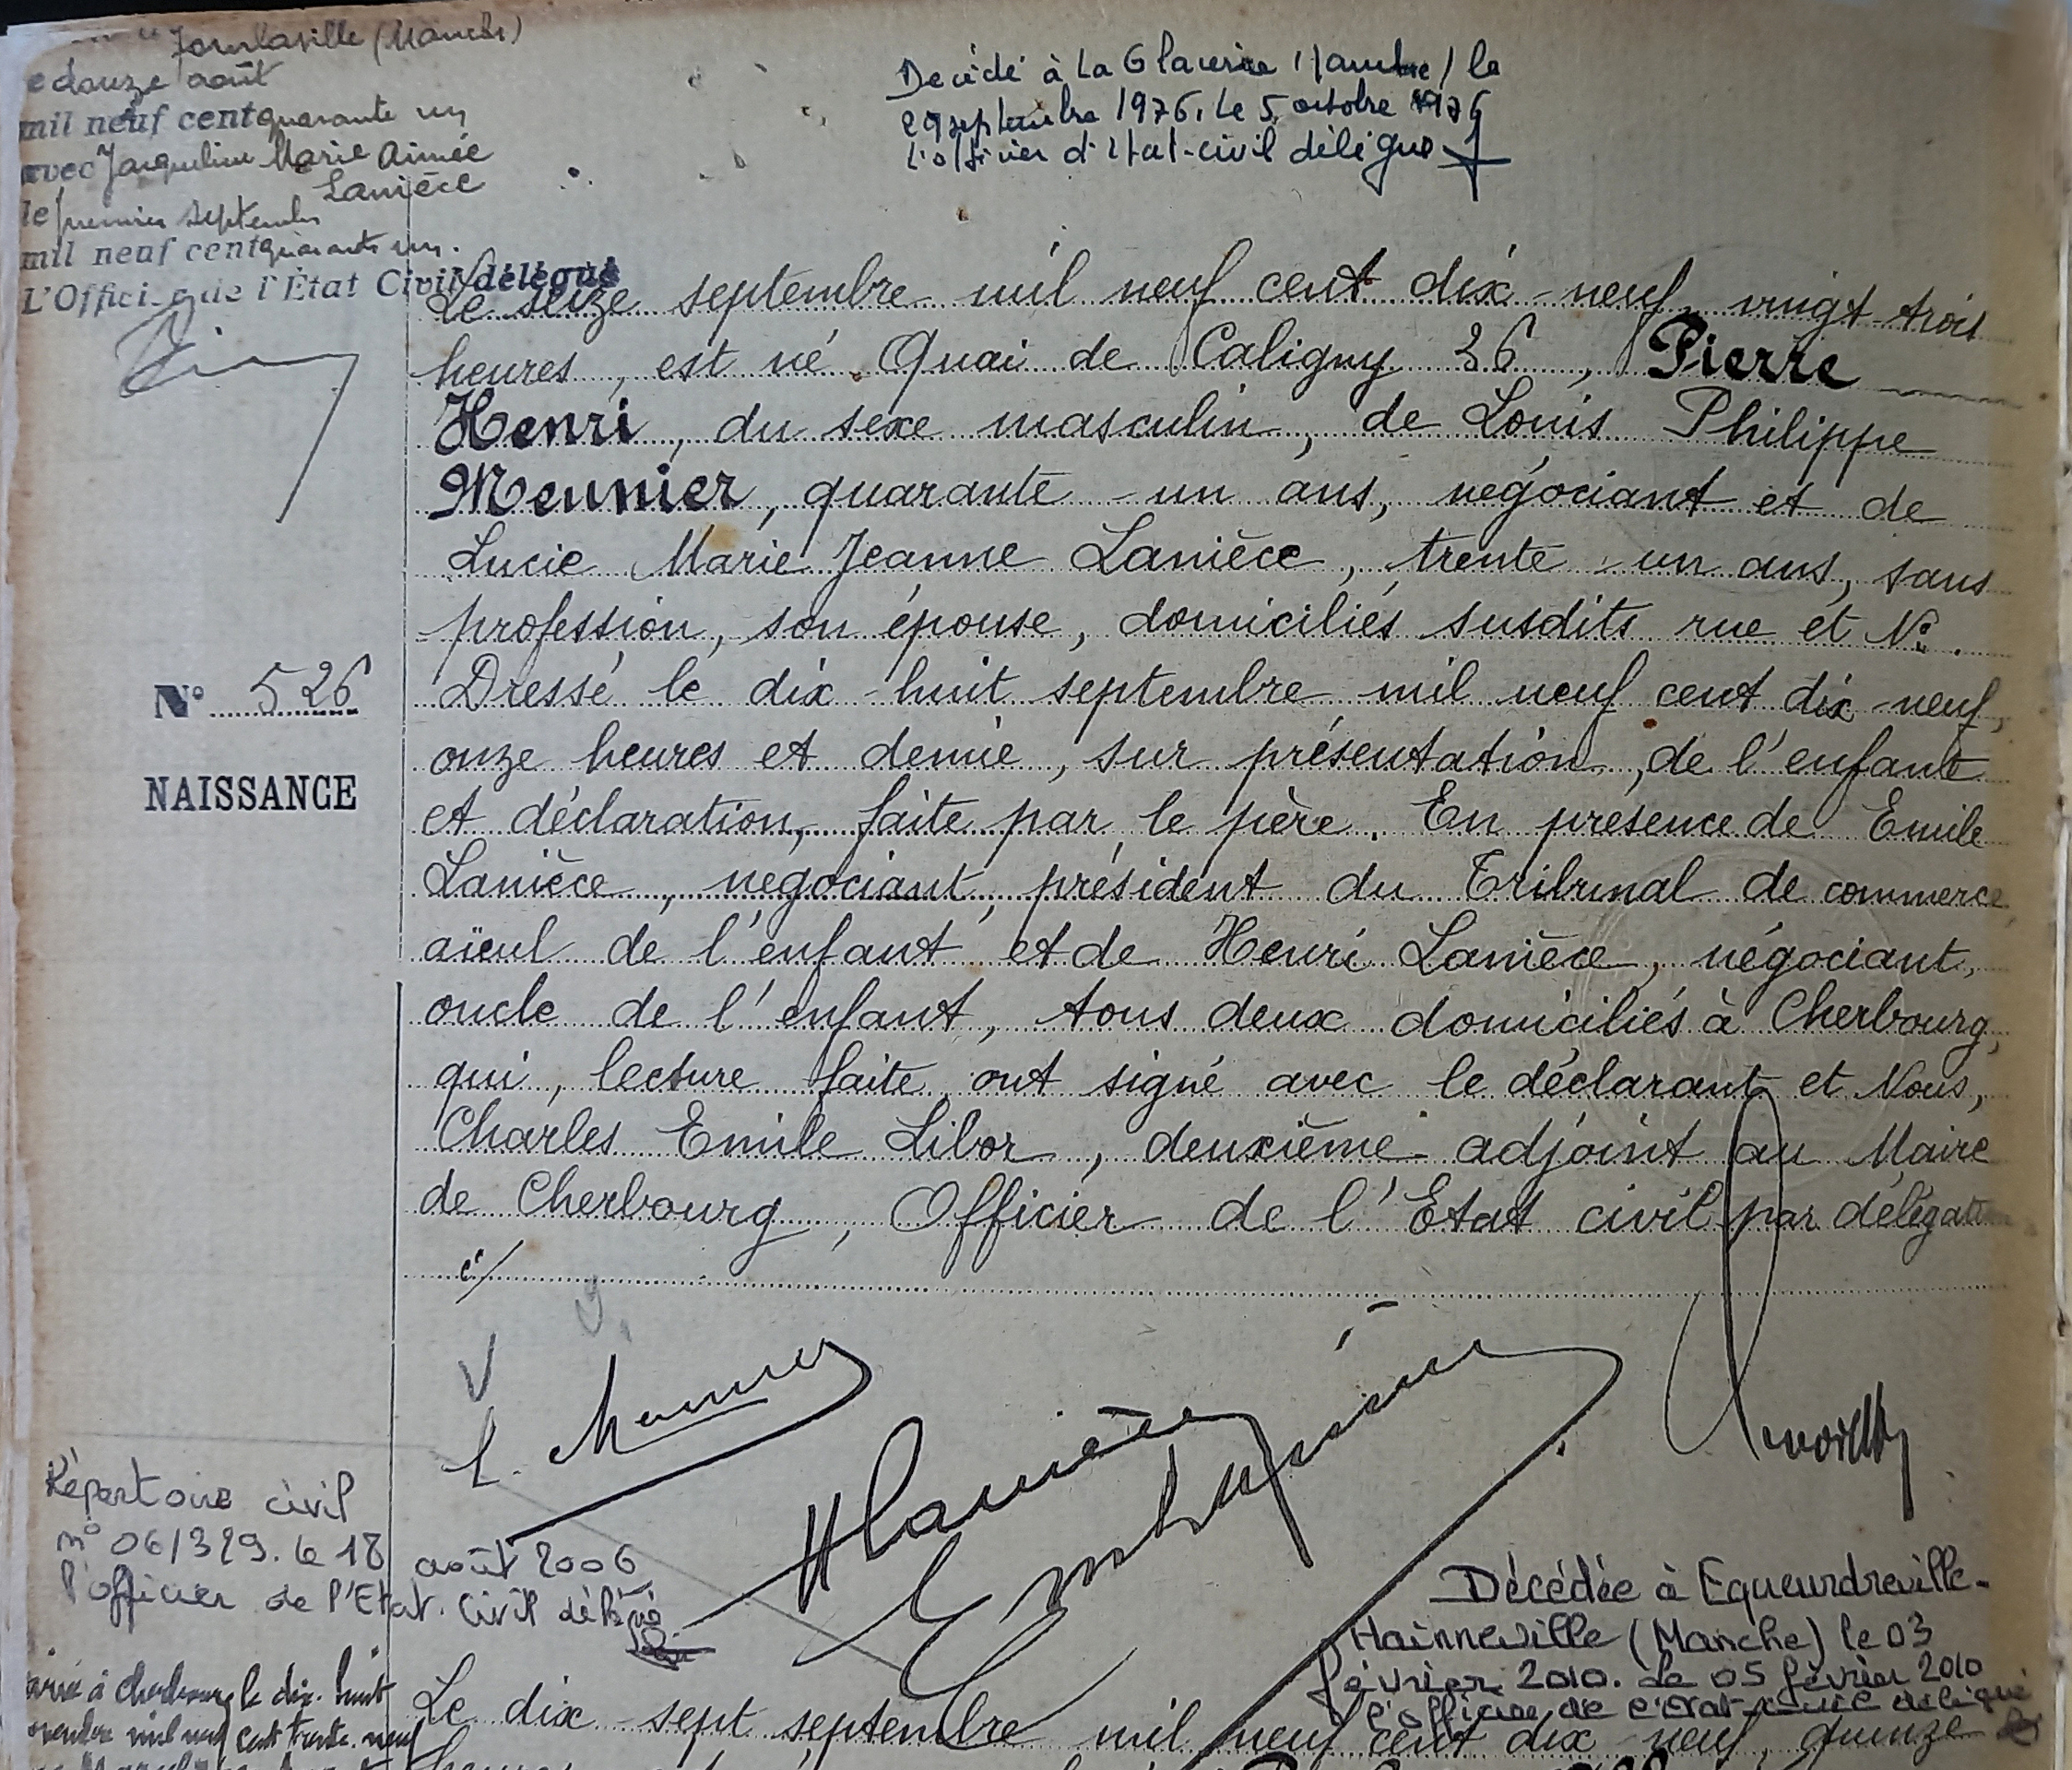 Tourlaville (Manche)
e douze août
mil neuf cent quarante un
avec Jacqueline Marie Aimée
Lanièce
le premier septembre
mil neuf cent quarante un.
L'Officier de l'État Civil délégué
Décédé à La Glacerie (Manche) le
29 septembre 1976. Le 5 octobre 1976
L'officier d'Etat-civil délégué
Le seize septembre mil neuf cent dix-neuf, vingt-trois
heures, est né Quai de Caligny 36, Pierre
Henri, du sexe masculin, de Louis Philippe
Meunier, quarante-un ans, négociant et de
Lucie Marie Jeanne Lanièce, trente-un ans, sans
profession, son épouse, domiciliés susdits rue et No.
N° 526
Dressé le dix-huit septembre mil neuf cent dix-neuf,
onze heures et demie, sur présentation de l'enfant
NAISSANCE
et déclaration, faite par le père. En présence de Emile
Lanièce, négociant, président du Tribunal de commerce
aïeul de l'enfant et de Henri Lanièce, négociant,
oncle de l'enfant, tous deux domiciliés à Cherbourg,
qui, lecture faite, ont signé avec le déclarant et Nous,
Charles Emile Libor, deuxième adjoint au Maire
de Cherbourg, Officier de l'Etat civil par délégation
L. Meunier
H Lanièce
Répertoire civil
n° 06/329. Le 18 août 2006
l'officier de l'Etat. Civil délégué
Décédée à Equeurdreville-
Hainneville (Manche) le 03
février 2010. Le 05 février 2010
l'officier de l'état-civil délégué
à Cherbourg le dix-huit
mil neuf cent trente-neuf
Le dix-sept septembre mil neuf cent dix-neuf, quinze